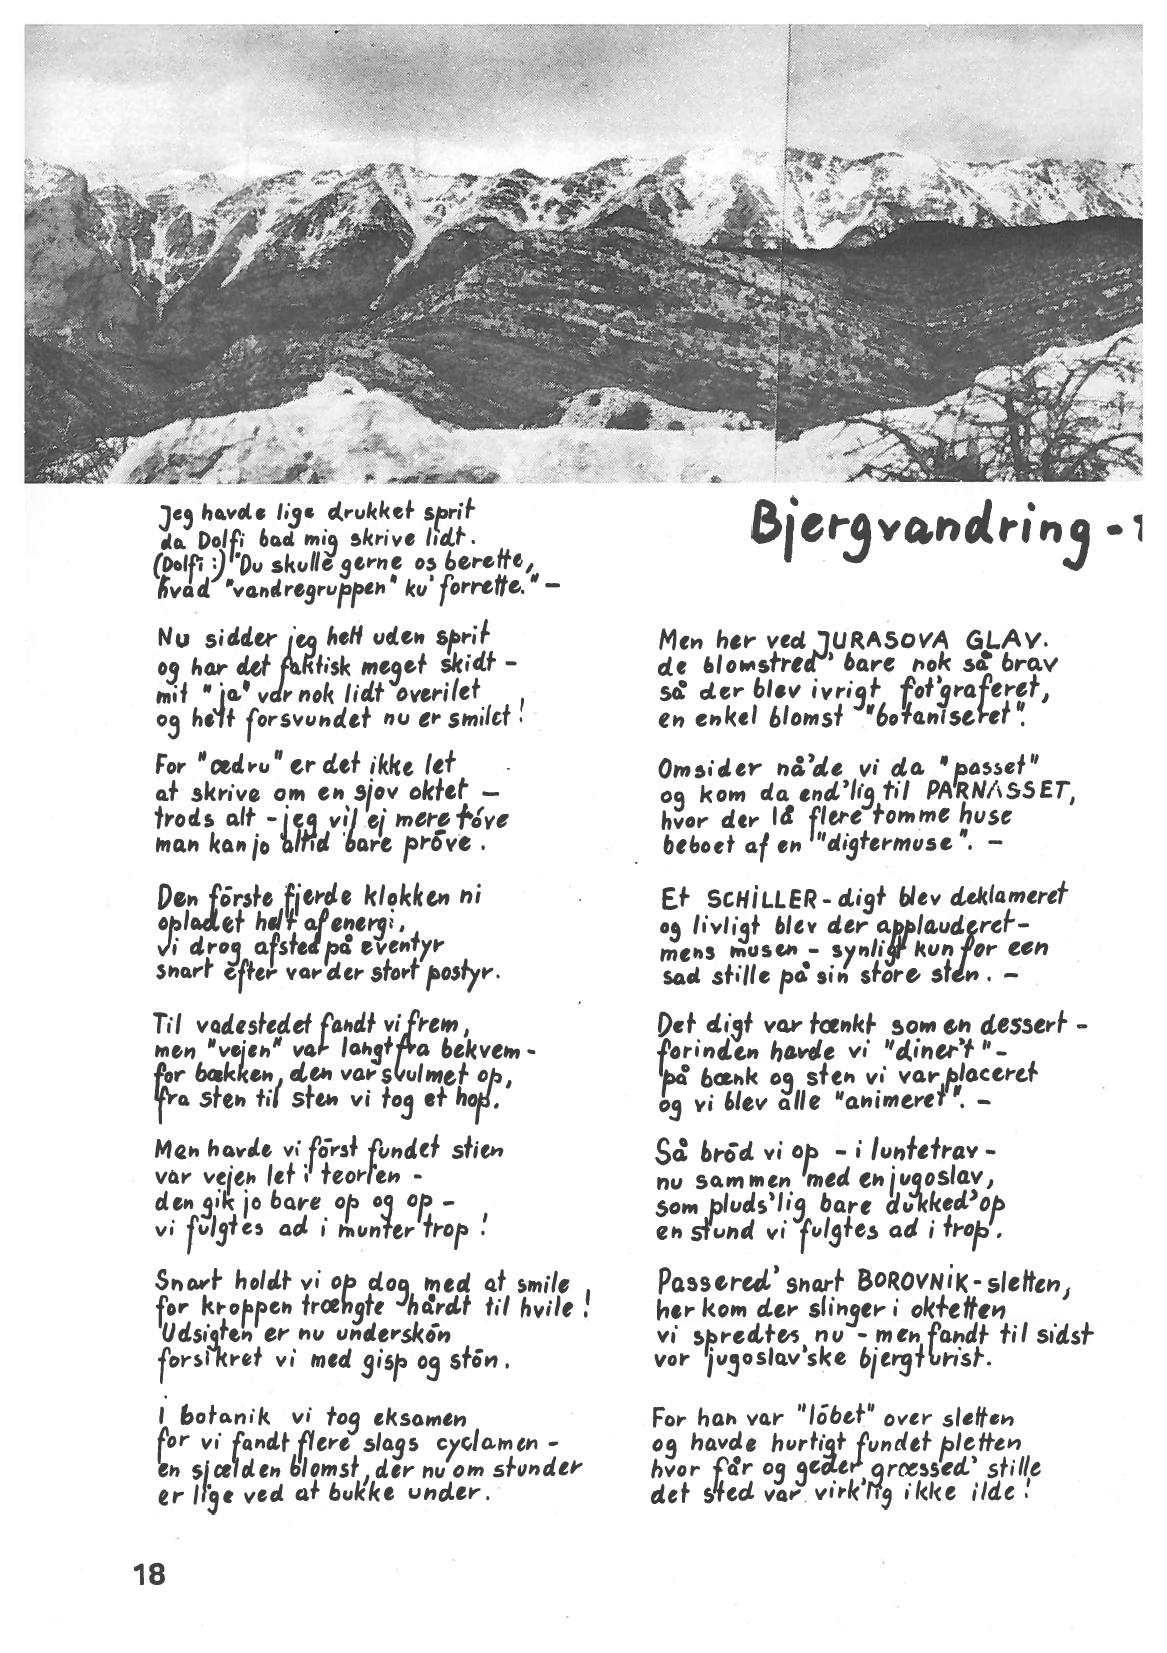 Bjergvandring -
Jeg havde lige drukket sprit
da Dolfi bad mig skrive lidt.
(Dolfi:) "Du skulle gerne os berette,
hvad "vandregruppen" ku' forrette." -
Nu sidder jeg helt uden sprit
og har det faktisk meget skidt -
mit "ja" var nok lidt overilet
og helt forsvundet nu er smilet!
For "ædru" er det ikke let
at skrive om en sjov oktet -
trods alt - jeg vil ej mere töve
man kan jo altid bare pröve.
Den förste fjerde klokken ni
opladet helt af energi,
vi drog afsted på eventyr
snart efter var der stort postyr.
Til vadestedet fandt vi frem,
men "vejen" var langt fra bekvem -
for bækken, den var svulmet op,
fra sten til sten vi tog et hop.
Men havde vi först fundet stien
var vejen let i teorien -
den gik jo bare op og op -
vi fulgtes ad i munter trop!
Snart holdt vi op dog med at smile
for kroppen trængte hårdt til hvile!
Udsigten er nu underskön
forsikret vi med gisp og stön.
I botanik vi tog eksamen
for vi fandt flere slags cyclamen -
en sjælden blomst, der nu om stunder
er lige ved at bukke under.
Men her ved JURASOVA GLAV.
de blomstred' bare nok så brav
så der blev ivrigt fot'graferet,
en enkel blomst "botaniseret".
Omsider nå'de vi da "passet"
og kom da end'lig til PARNASSET,
hvor der lå flere tomme huse
beboet af en "digtermuse". -
Et SCHiLLER - digt blev deklameret
og livligt blev der applauderet -
mens musen - synligt kun for een
sad stille på sin store sten. -
Det digt var tænkt som en dessert -
forinden havde vi "diner't" -
på bænk og sten vi var placeret
og vi blev alle "animeret". -
Så bröd vi op - i luntetrav -
nu sammen med en jugoslav,
som pluds'lig bare dukked' op
en stund vi fulgtes ad i trop.
Passered' snart BOROVNiK - sletten,
her kom der slinger i oktetten
vi spredtes nu - men fandt til sidst
vor jugoslav'ske bjergturist.
For han var "löbet" over sletten
og havde hurtigt fundet pletten
hvor får og geder græssed' stille
det sted var virk'lig ikke ilde!
18